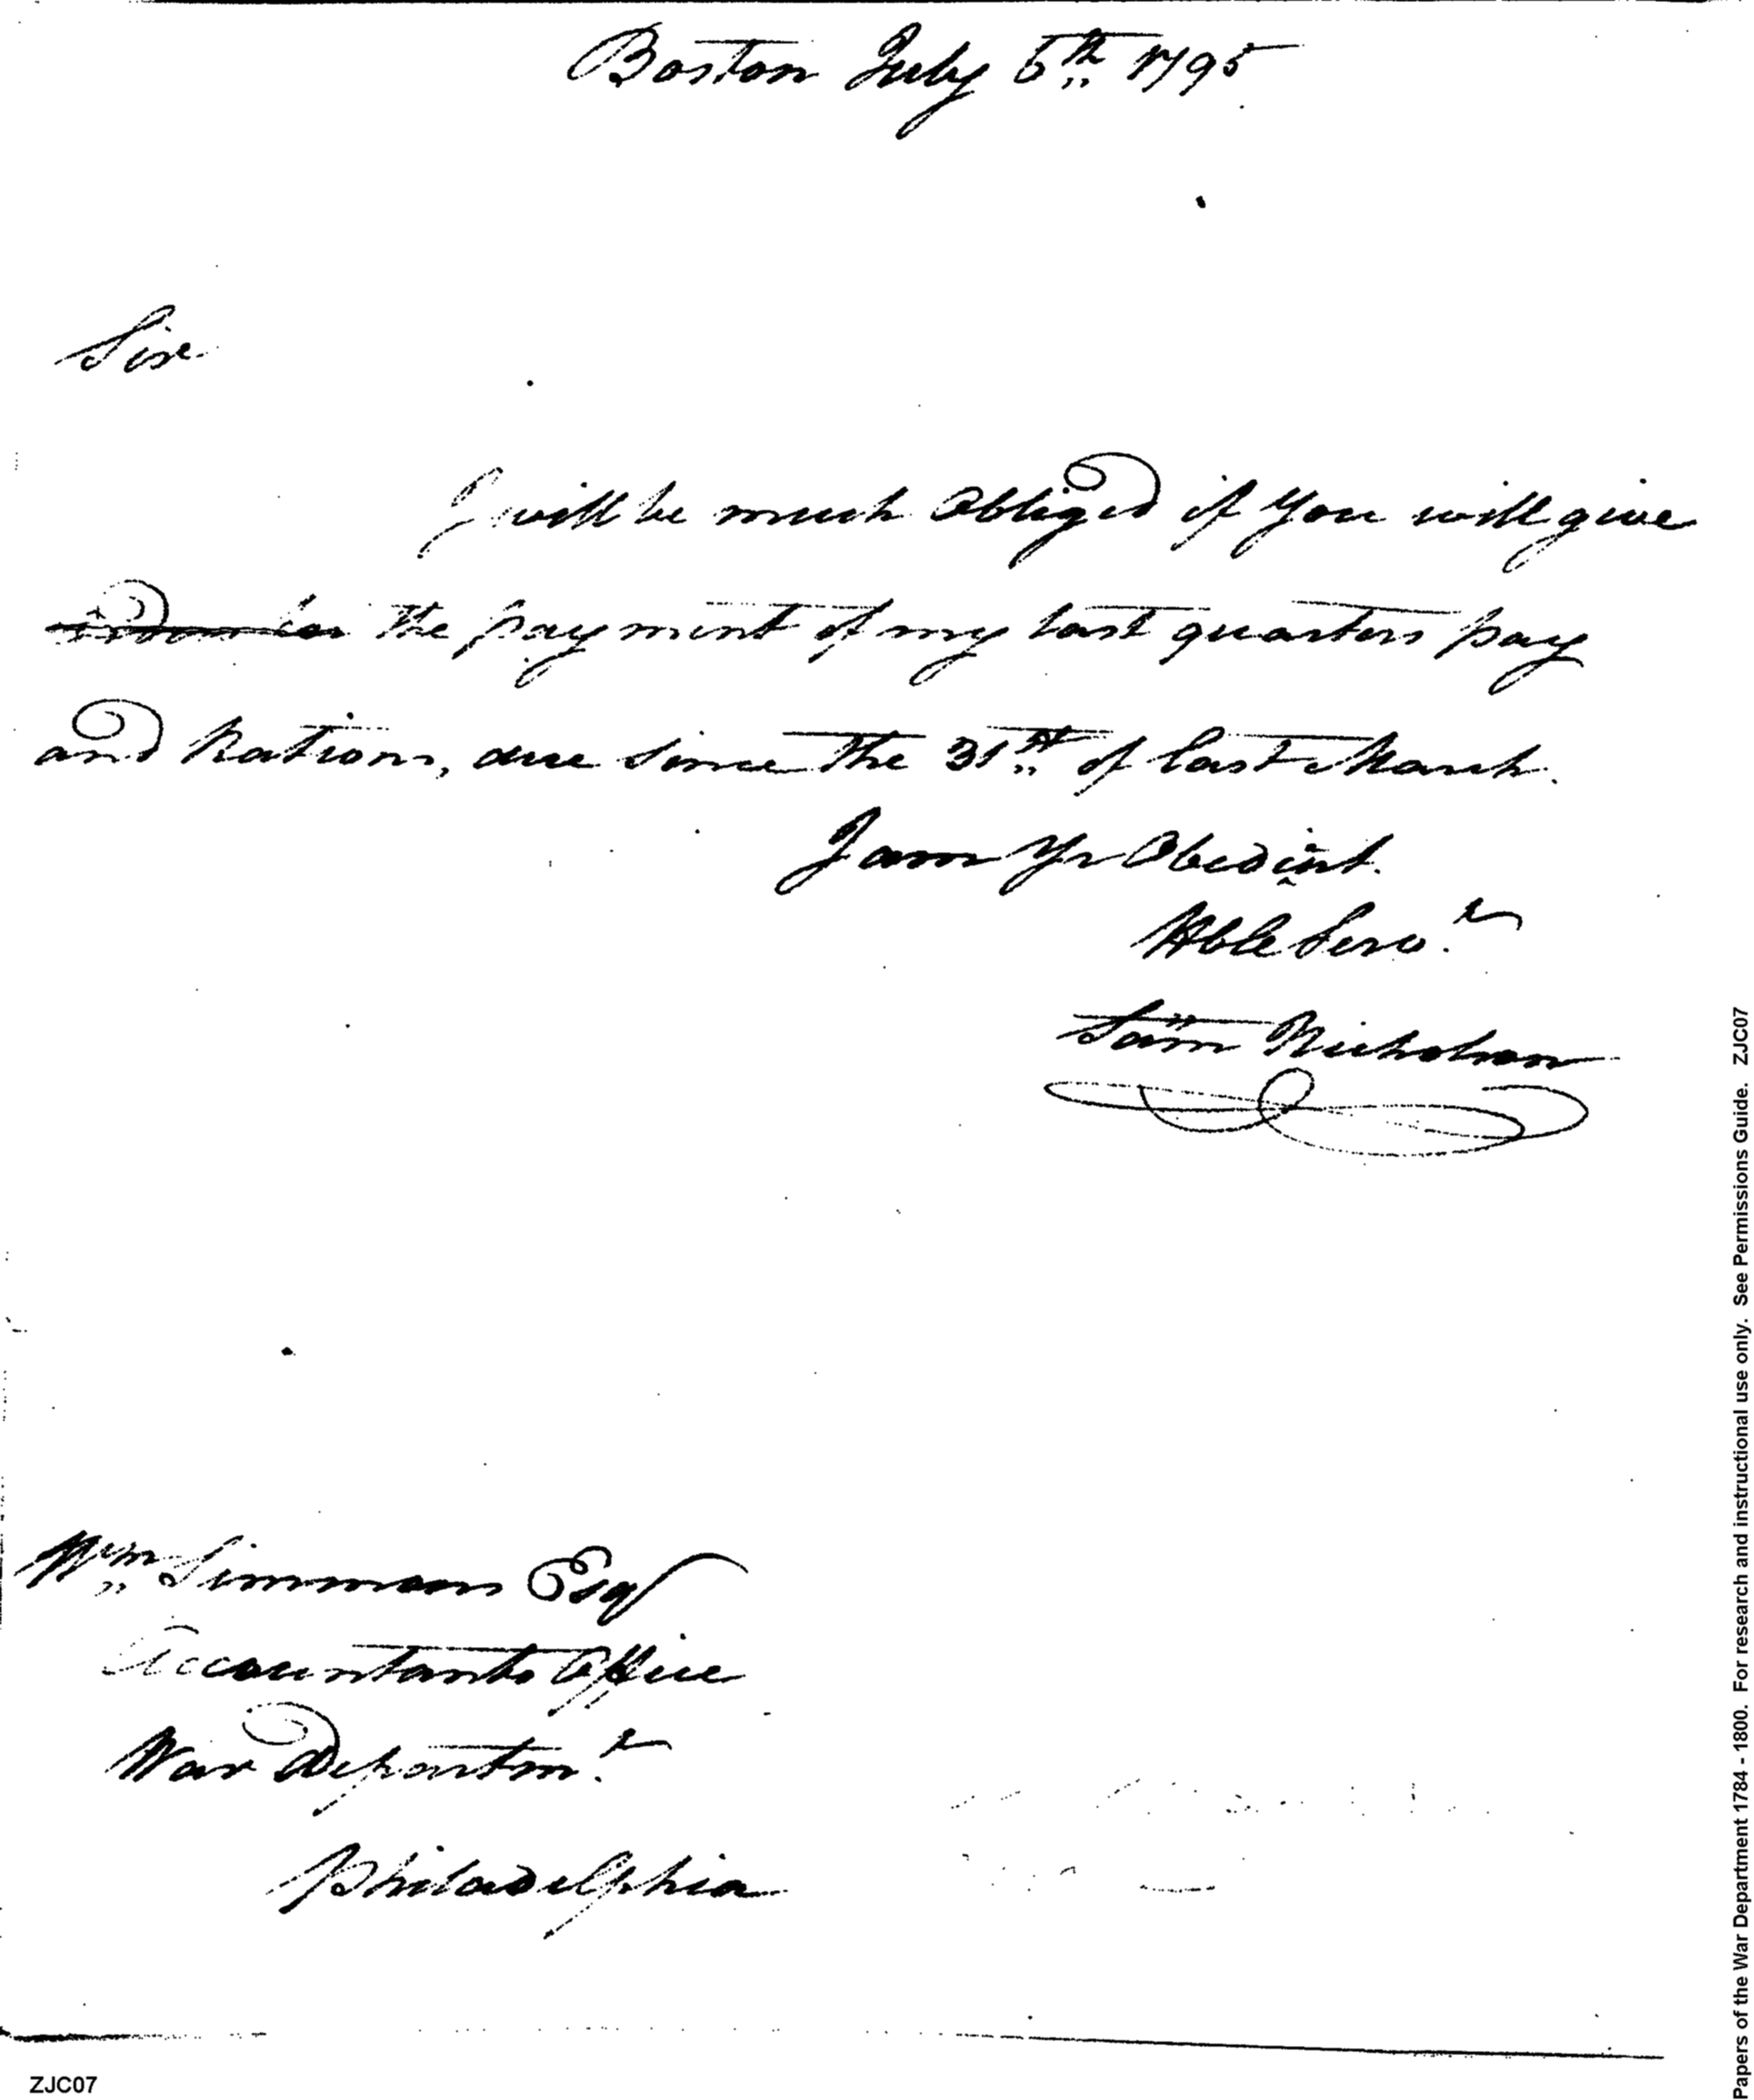 Boston July 6th 1795
Sir
I will be much Obliged if you will give
the payment of my last quarters pay
and Rations, due since the 31st of last March.
I am Yr Obedient.
Hble Servt
Sam Nicholson
Wm Simmons Esqr
Accountants Office
War Departmt
Philadelphia
ZJC07
Papers of the War Department 1784 - 1800. For research and instructional use only. See Permissions Guide. ZJC07